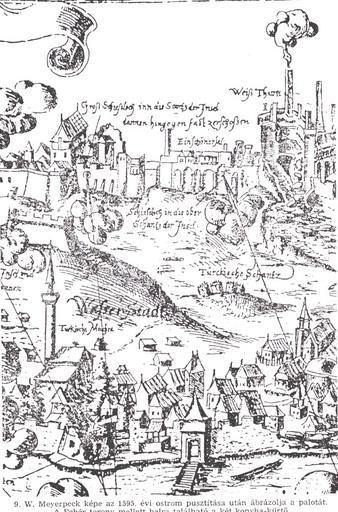 Weiß Thurn
Groß Schießloch inn die Stadt der Insel
dannen hingegen fast zerschoßen
Ein schöner sal
Schießloch in die ober
Schantz der Insel
Insel
Türckische Schantz
Wasserstadt
9. W. Meyerpeck képe az 1595. évi ostrom pusztítása után ábrázolja a palotát.
A Fehér torony mellett balra található a két konyha-kürtő